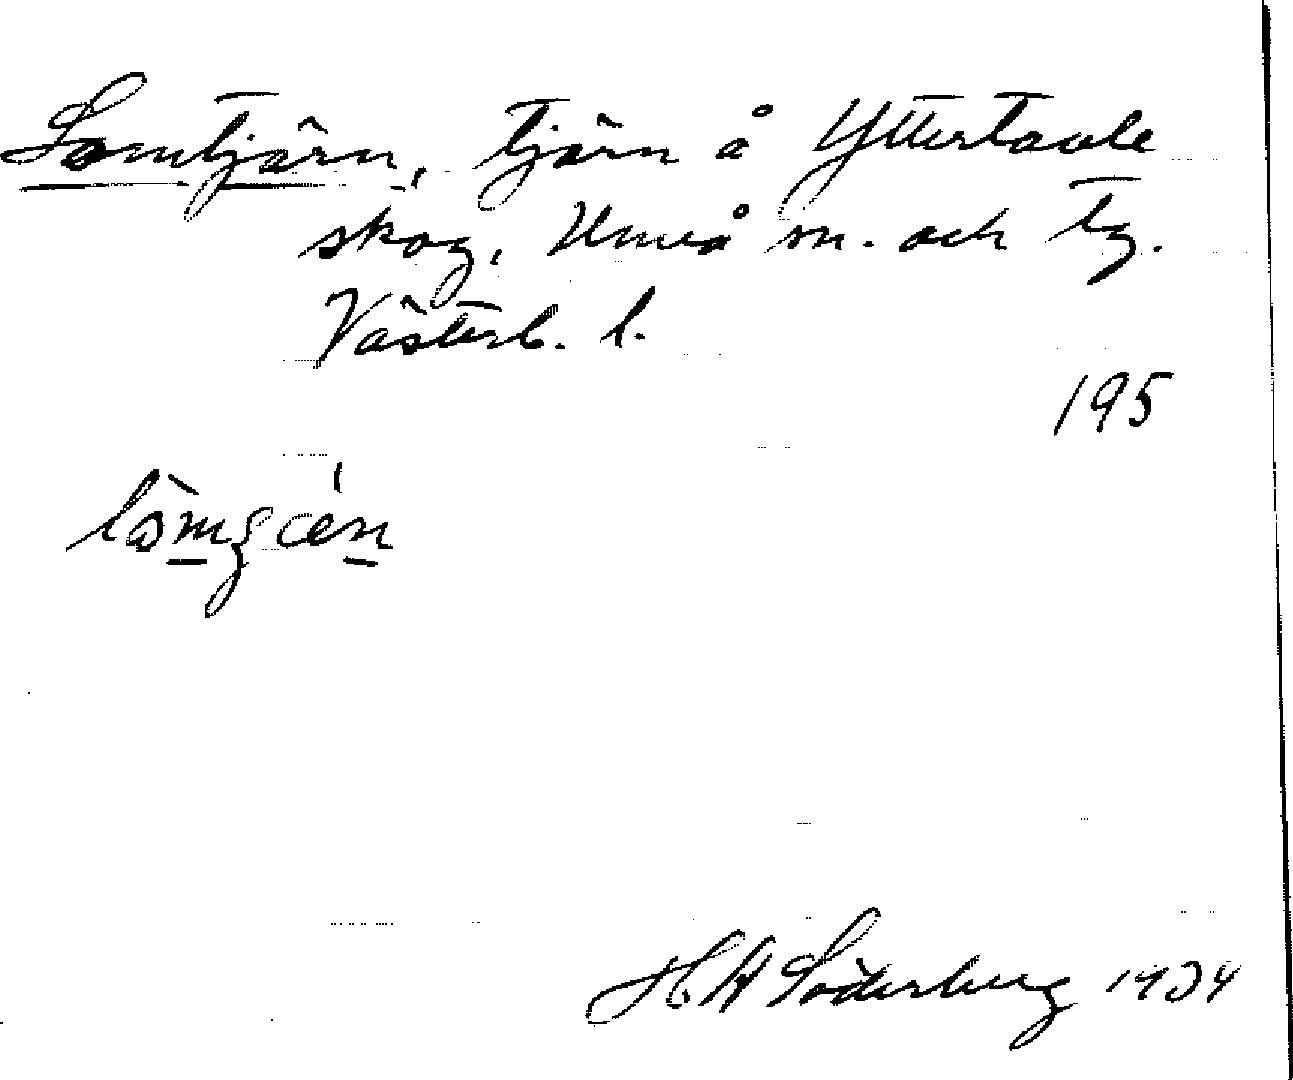 Lomtjärn, tjärn å Yttertavle
skog, Umeå sn. och tg.
Västerb. l.
195
H A Söderberg 1934